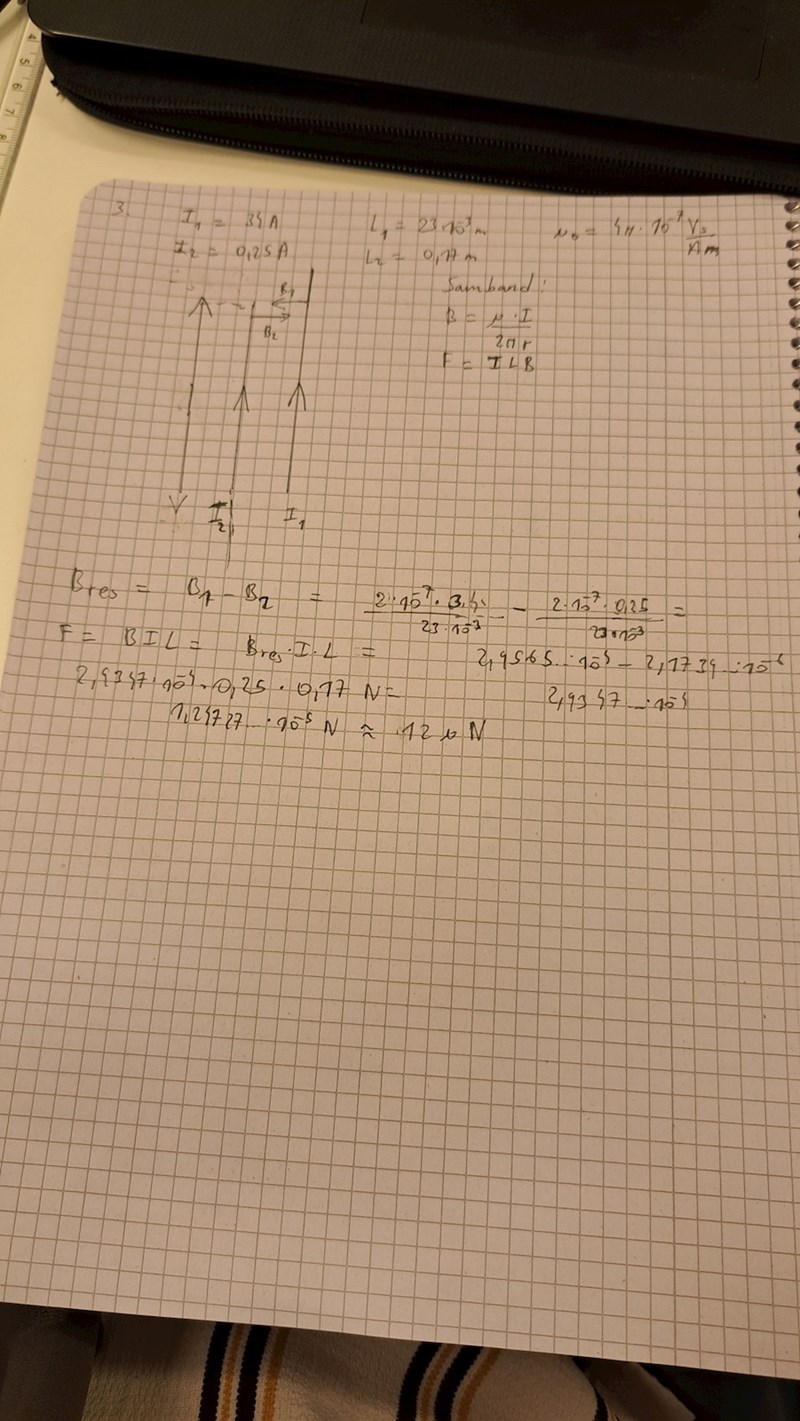 3.
I₁ = 34 A L₁ = 23·10⁻³ m μ₀ = 4π·10⁻⁷ Vs/Am
I₂ = 0,25 A L₂ = 0,17 m
Samband:
B₁
B = μ·I / 2πr
B₂
F = ILB
I₂ I₁
Bres = B₁ - B₂ = 2·10⁻⁷·34 / 23·10⁻³ - 2·10⁻⁷·0,25 / 23·10⁻³ =
F = BIL = Bres·I·L = 2,9565...·10⁻⁴ - 2,1739...·10⁻⁶
2,9347·10⁻⁴·0,25·0,17 N = 2,9347...·10⁻⁴
1,24727...·10⁻⁵ N ≈ 12 μN
4 5 6 7 8